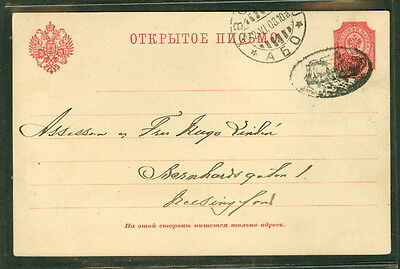 ОТКРЫТОЕ ПИСЬМО
VI 03 10
* АБО *
Assessor Fru Hugo
Bernhardsgatan 1.
Helsingfors
На этой сторонѣ пишется только адресъ.